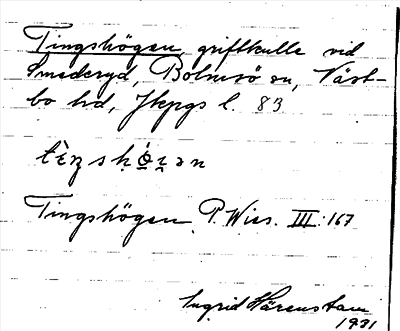 Tingshögen, grifthulle vid
Smederyd, Bolmsö sn, Väst-
bo hd, Jkpgs l. 83
Tingshögen P. Wies. III: 167
Ingrid Härenstam
1931